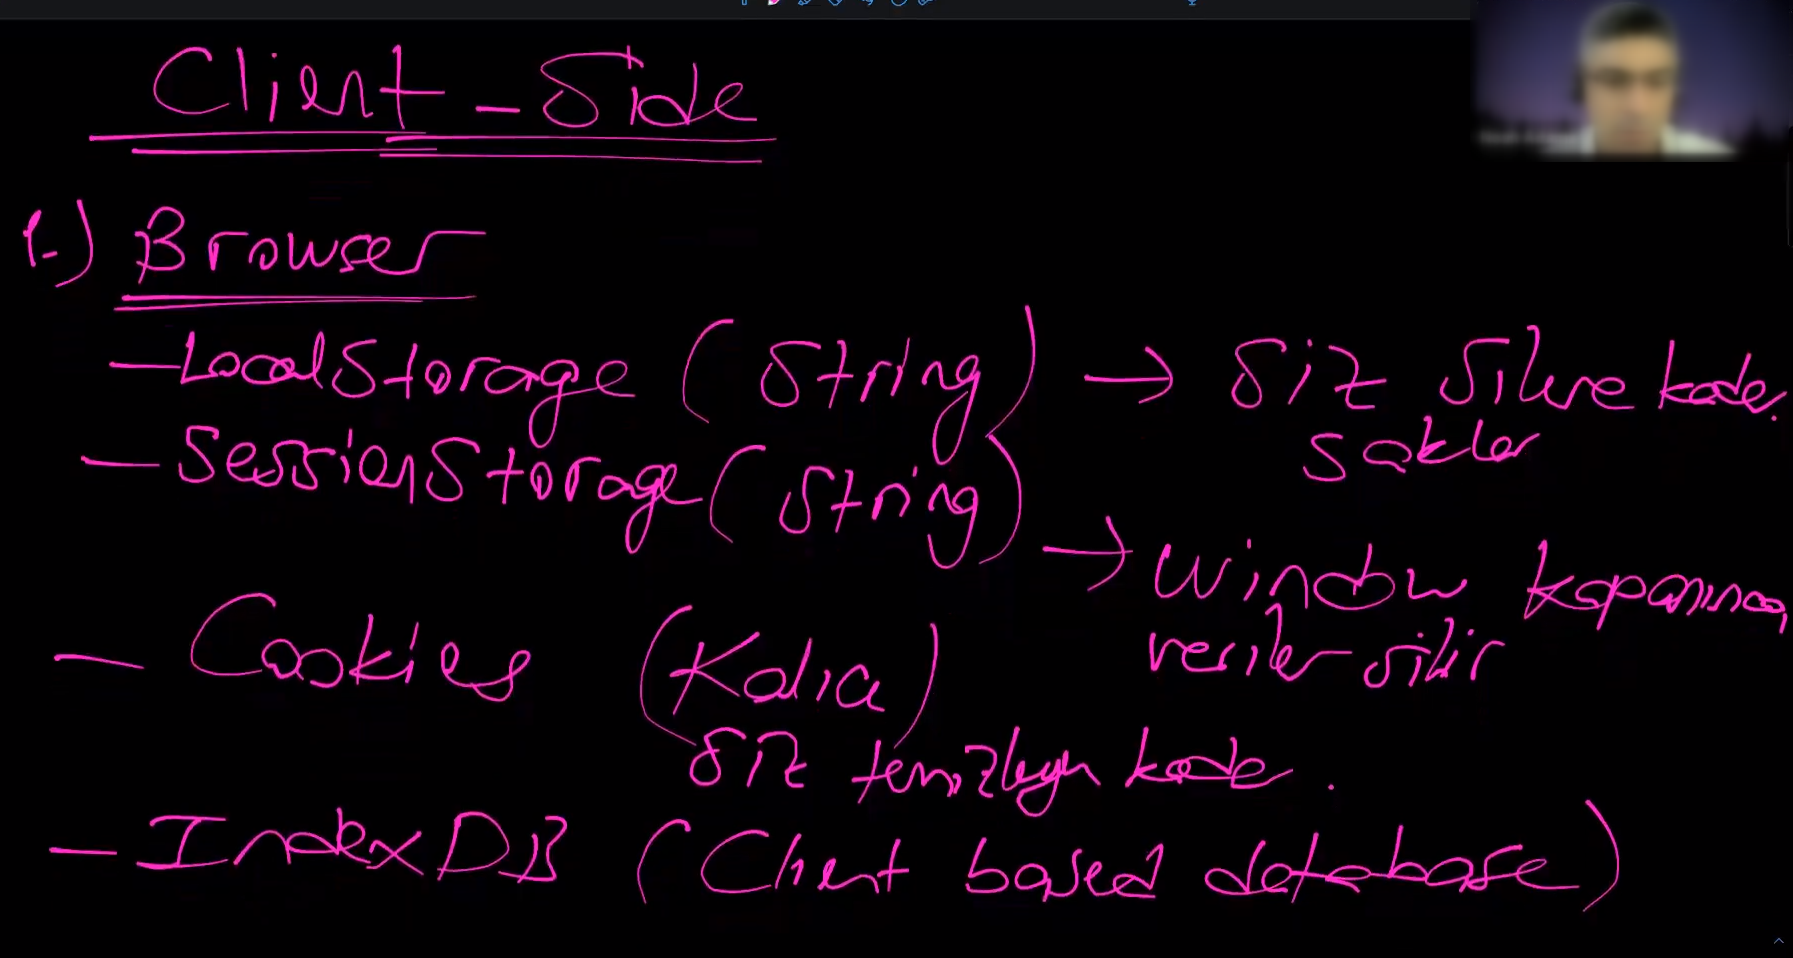 Client - Side
1-) Browser
- LocalStorage (String) → Siz Silene kadar
saklar
- SessionStorage (String)
→ Window kapanınca
veriler silinir
- Cookies (Kalıcı)
Siz temizleyene kadar.
- IndexDB (Client based database)